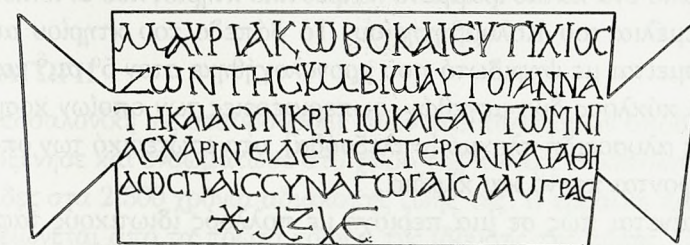 ΜΑΥΡΙΑΚΩΒΟΚΑΙΕΥΤΥΧΙΟϹ
ΖΩΝΤΗϹΥΜΒΙΩΑΥΤΟΥΑΝΝΑ
ΤΗΚΑΙΑϹΥΝΚΡΙΤΙΩΚΑΙΕΑΥΤΩΜΝΙ
ΑϹΧΑΡΙΝΕΙΔΕΤΙϹΕΤΕΡΟΝΚΑΤΑΘΗ
ΔΩϹΙΤΑΙϹϹΥΝΑΓΩΓΑΙϹΛΑΜΠΡΑϹ